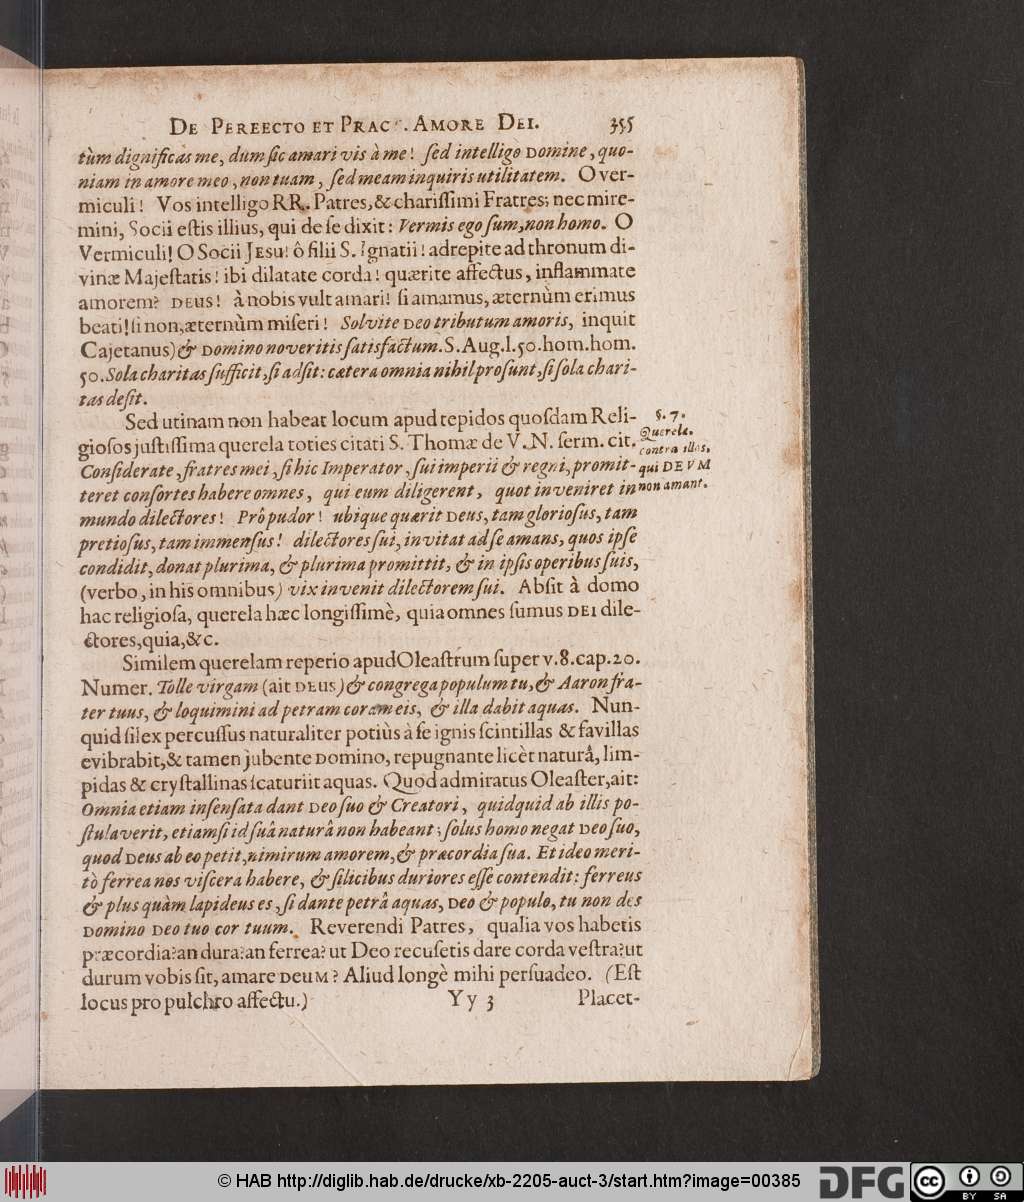 DE PEREECTO ET PRAC . AMORE DEI. 355
tùm dignificas me, dum ſic amari vis à me! ſed intelligo DOMINE, quo-
niam in amore meo, non tuam, ſed meam inquiris utilitatem. O ver-
miculi! Vos intelligo RR. Patres, & chariſſimi Fratres; nec mire-
mini, Socii eſtis illius, qui de ſe dixit: Vermis ego ſum, non homo. O
Vermiculi! O Socii JESU! ô filii S. Ignatii! adrepite ad thronum di-
vinæ Majeſtatis! ibi dilatate corda! quærite affectus, inflammate
amorem? DEUS! à nobis vult amari! ſi amamus, æternùm erimus
beati! ſi non, æternùm miſeri! Solvite DEO tributum amoris, inquit
Cajetanus) & DOMINO noveritis ſatisfactum. S. Aug. l. 50. hom. hom.
50. Sola charitas ſufficit, ſi adſit: cætera omnia nihil proſunt, ſi ſola chari-
tas deſit.
Sed utinam non habeat locum apud tepidos quoſdam Reli-
gioſos juſtiſſima querela toties citati S. Thomæ de V. N. ſerm. cit.
Conſiderate, fratres mei, ſi hic Imperator, ſui imperii & regni, promit-
teret conſortes habere omnes, qui eum diligerent, quot inveniret in
mundo dilectores! Prô pudor! ubique quærit DEUS, tam glorioſus, tam
pretioſus, tam immenſus! dilectores ſui, invitat ad ſe amans, quos ipſe
condidit, donat plurima, & plurima promittit, & in ipſis operibus ſuis,
(verbo, in his omnibus) vix invenit dilectorem ſui. Abſit à domo
hac religioſa, querela hæc longiſſimè, quia omnes ſumus DEI dile-
ctores, quia, &c.
§. 7.
Querela.
contra illos,
qui DEUM
non amant.
Similem querelam reperio apud Oleaſtrum ſuper v. 8. cap. 20.
Numer. Tolle virgam (ait DEUS) & congrega populum tu, & Aaron fra-
ter tuus, & loquimini ad petram coram eis, & illa dabit aquas. Nun-
quid ſilex percuſſus naturaliter potiùs à ſe ignis ſcintillas & favillas
evibrabit, & tamen jubente DOMINO, repugnante licèt naturâ, lim-
pidas & cryſtallinas ſcaturiit aquas. Quod admiratus Oleaſter, ait:
Omnia etiam inſenſata dant DEO ſuo & Creatori, quidquid ab illis po-
ſtulaverit, etiamſi id ſuâ naturâ non habeant; ſolus homo negat DEO ſuo,
quod DEUS ab eo petit, nimirum amorem, & præcordia ſua. Et ideo meri-
tò ferrea nos viſcera habere, & ſilicibus duriores eſſe contendit: ferreus
& plus quàm lapideus es, ſi dante petrâ aquas, DEO & populo, tu non des
DOMINO DEO tuo cor tuum. Reverendi Patres, qualia vos habetis
præcordia? an dura? an ferrea? ut Deo recuſetis dare corda veſtra? ut
durum vobis ſit, amare DEUM? Aliud longè mihi perſuadeo. (Eſt
locus pro pulchro affectu.) Yy 3 Placet-
© HAB http://diglib.hab.de/drucke/xb-2205-auct-3/start.htm?image=00385
DFG
cc BY SA